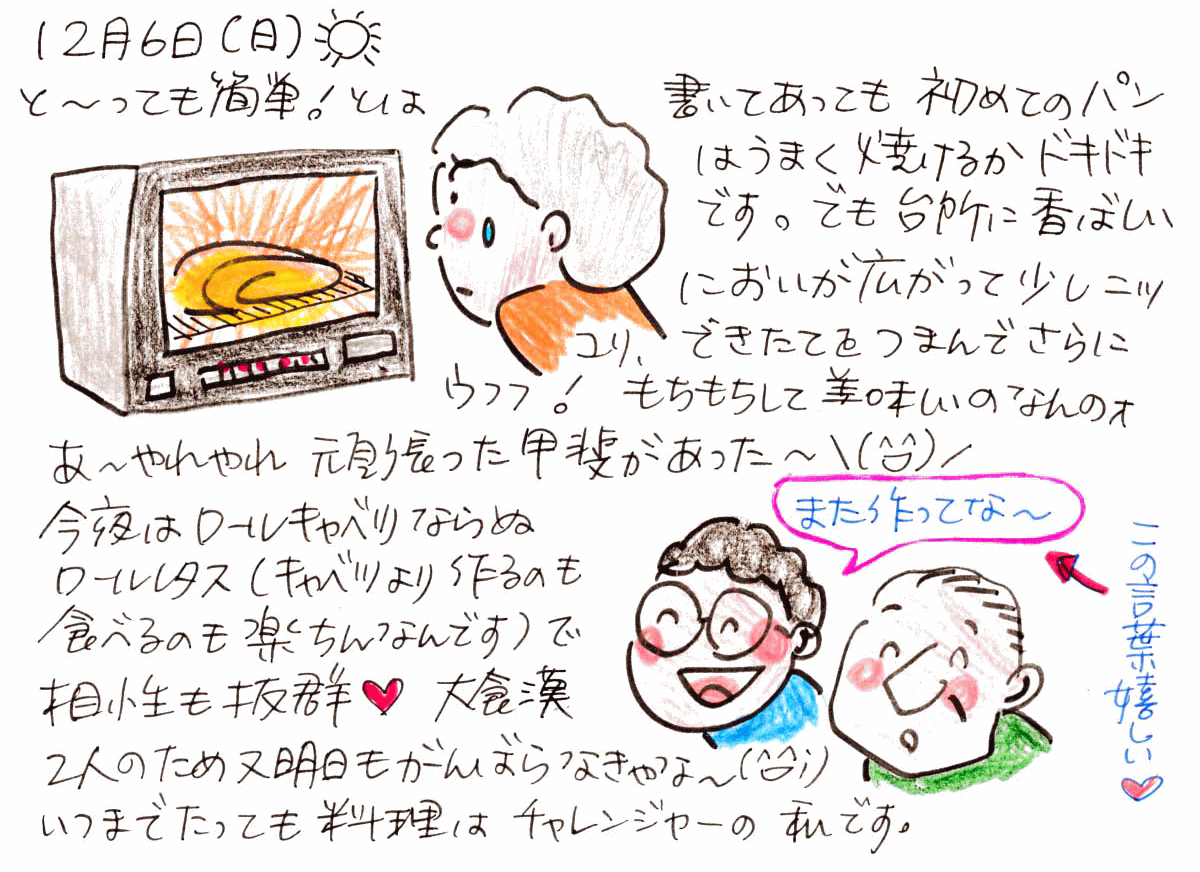 12月6日(日)
と〜っても簡単!とは
書いてあっても 初めてのパン
はうまく焼けるか ドキドキ
です。でも台所に香ばしい
においが広がって少しニッ
コリ、できたてをつまんでさらに
ウフフ! もちもちして美味しいのなんのォ
あ〜やれやれ 頑張った甲斐があった〜\(^^)/
今夜はロールキャベツならぬ
ロールレタス(キャベツより作るのも
食べるのも楽ちんなんです)で
相性も抜群♥ 大食漢
2人のため又明日もがんばらなきゃな〜(^^;)
いつまでたっても料理はチャレンジャーの私です。
また作ってな〜
この言葉嬉しい♥